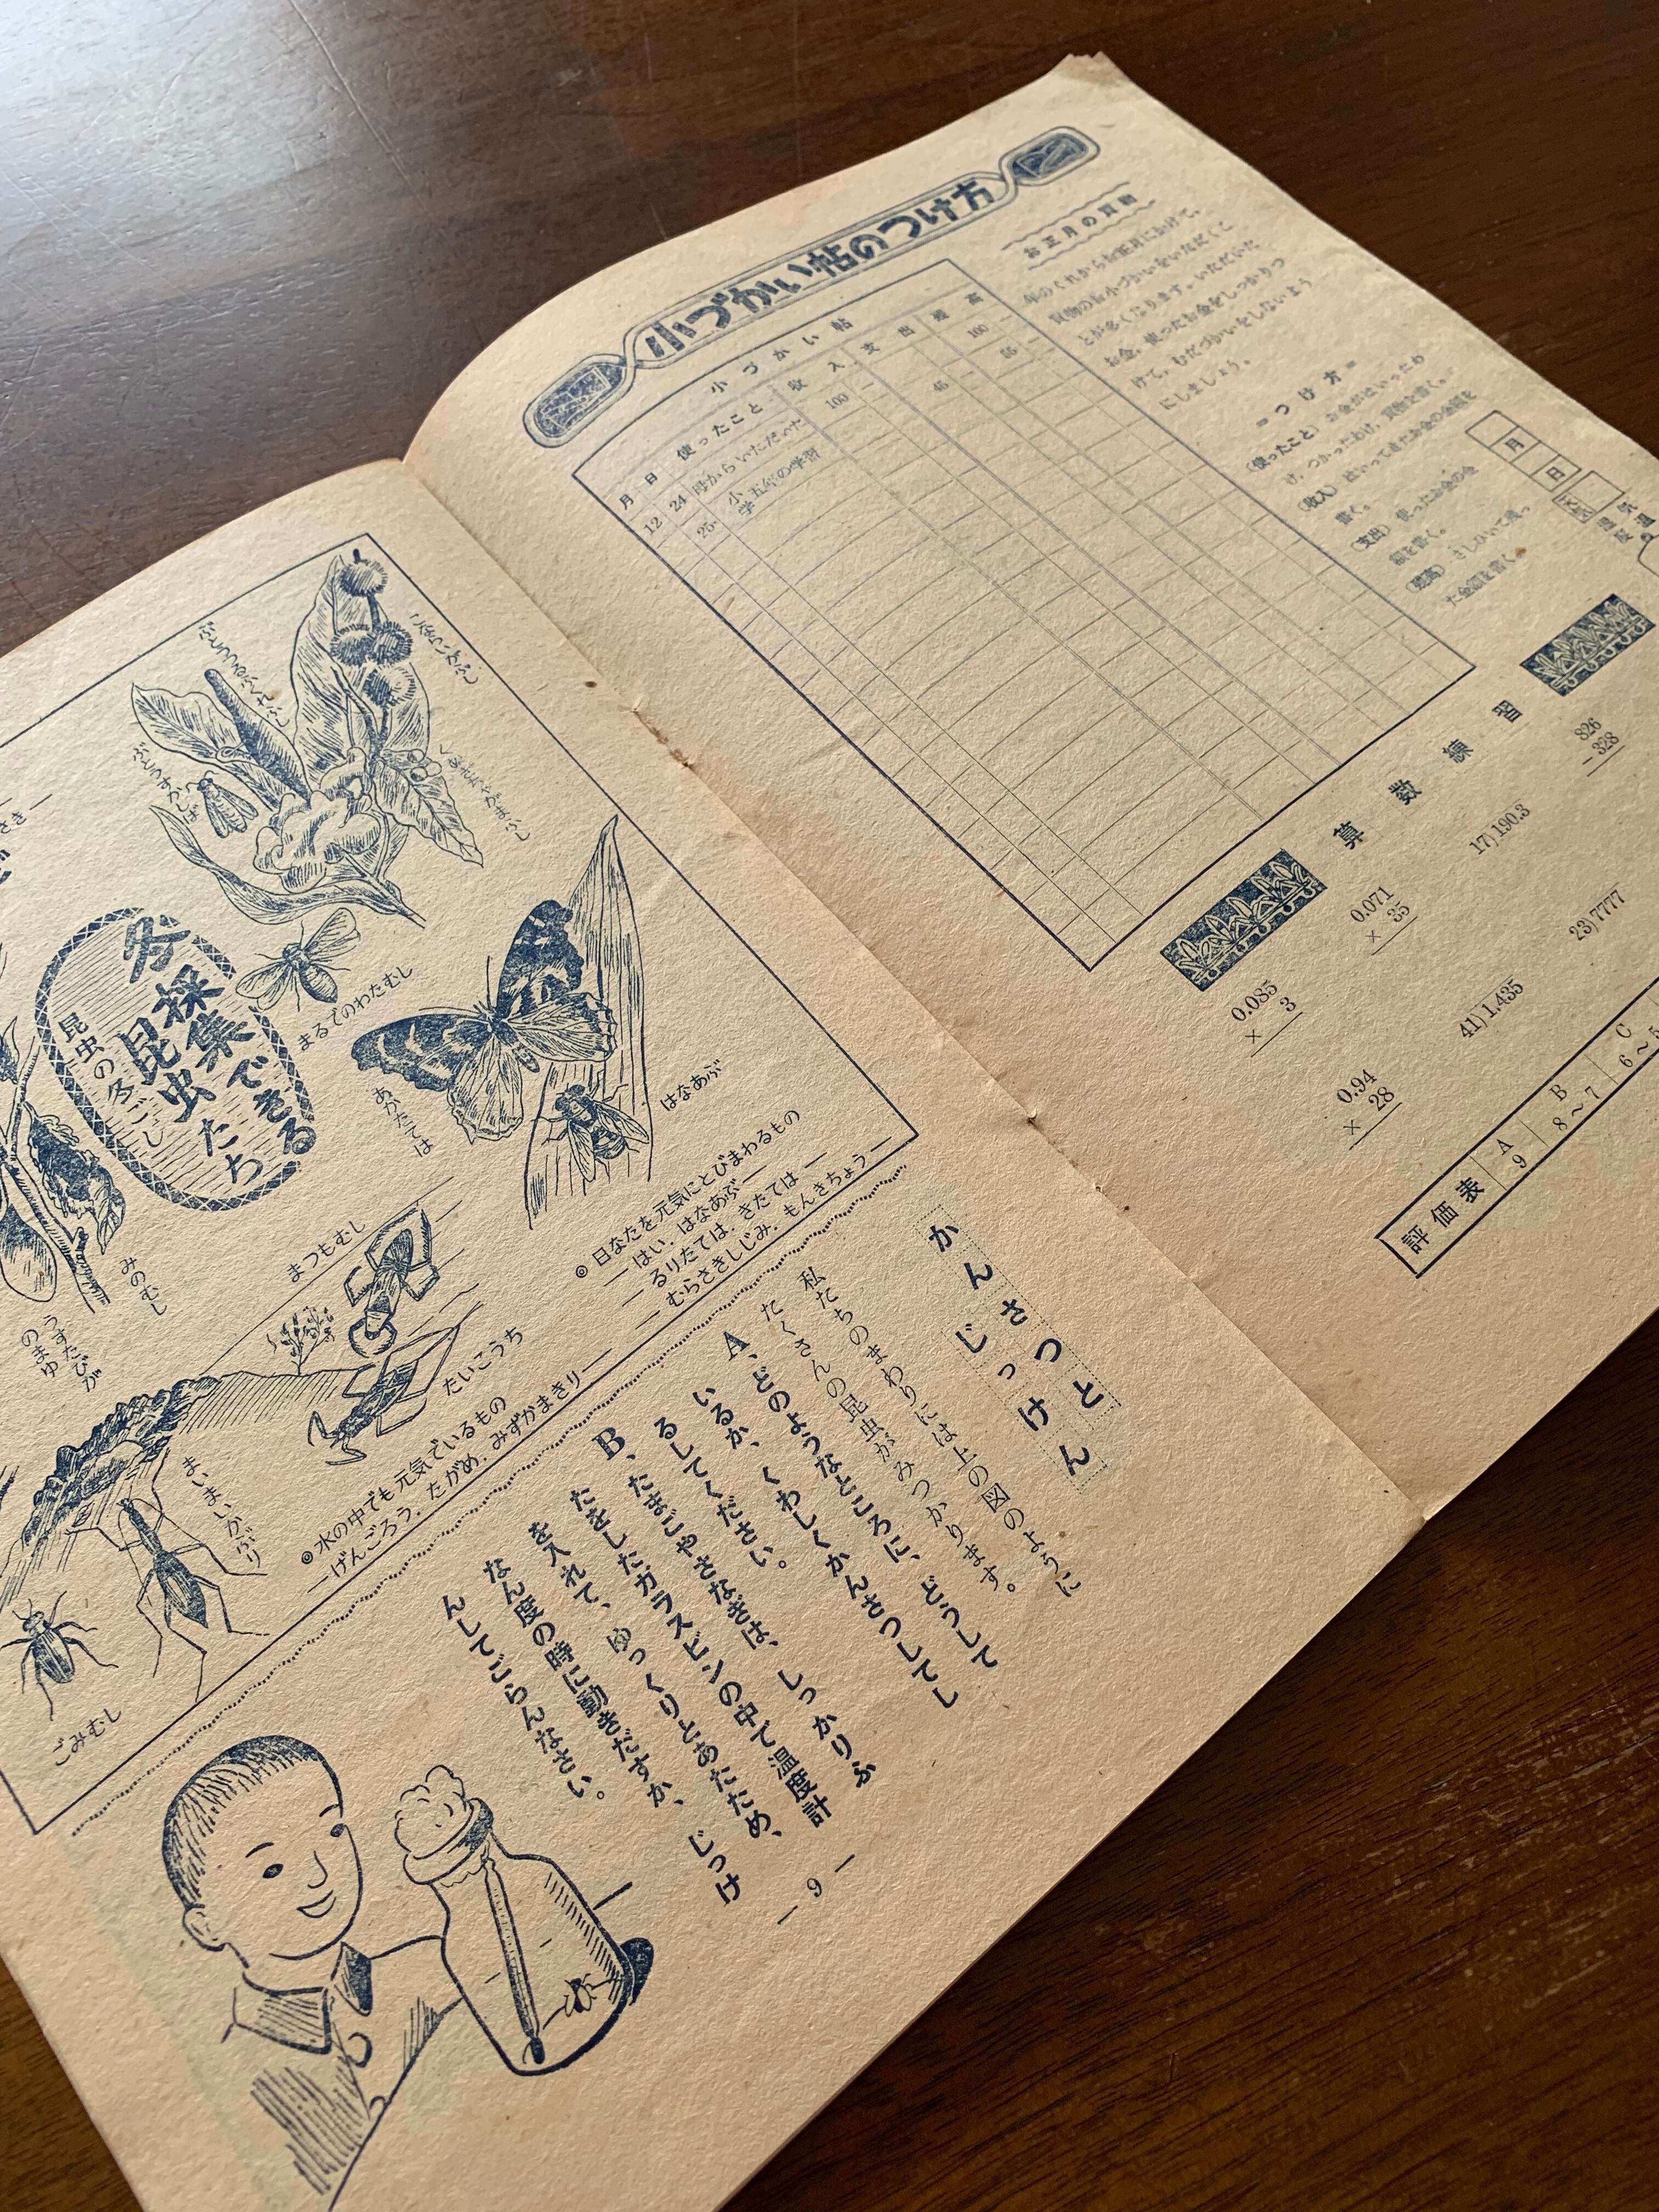 小づかい帖のつけ方
お正月の買物
年のくれからお正月にかけて、
買物のお小づかいをいただくこ
とが多くなります。いただいた
お金、使ったお金をしっかりつ
けて、むだづかいをしないよう
にしましょう。
＝つけ方＝
(使ったこと) お金がはいったわ
け、つかったわけ、買物を書く。
(収入) はいってきたお金の金額を
書く。
(支出) 使ったお金の金
額を書く。
(残高) さしひいて残っ
た金額を書く。
小づかい帖
月 日 使ったこと 収入 支出 残高
12 24 母からいただいた 100 — 100 —
25 小学五年の学習 45 — 55 —
月
日
算数練習
826
- 328
17)190.3
23)7777
0.071
× 35
41)1.435
0.085
× 3
0.94
× 28
評価表
A
9
B
8～7
C
6～5
冬採集できる
昆虫たち
昆虫の冬ごし
まるでのわたむし
はなあぶ
みのむし
うすたびが
のまゆ
まつもむし
たいこうち
まいまいかぶり
ごみむし
◎日なたを元気にとびまわるもの
—はい．はなあぶ—
るりたては．きたては—
—むらさきしじみ．もんきちょう—
◎水の中でも元気でいるもの
—げんごろう．たがめ．みずかまきり—
かんさつと
じっけん
私たちのまわりには上の図のように
たくさんの昆虫がみつかります。
A、どのようなところに、どうして
いるか、くわしくかんさつしてし
るしてください。
B、たまごやさなぎは、しっかりふ
たをしたガラスビンの中で温度計
を入れて、ゆっくりとあたため、
なん度の時に動きだすか、じっけ
んしてごらんなさい。
— 9 —